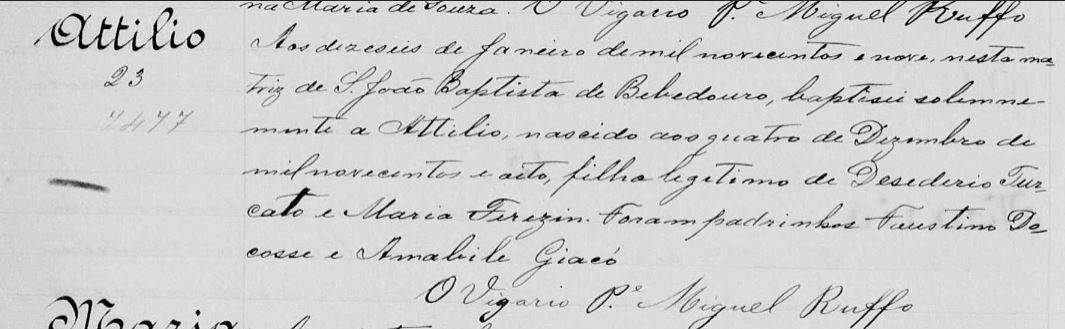 na Maria de Souza. O Vigario P.e Miguel Ruffo
Attilio
23
7477
Aos dezeseis de Janeiro de mil novecentos e nove, nesta ma=
triz de S. João Baptista de Bebedouro, baptisei solemne-
mente a Attilio, nascido aos quatro de Dezembro de
mil novecentos e oito, filho legitimo de Desederio Tur=
cato e Maria Terezin. Foram padrinhos Faustino Do=
cosse e Amabile Giacó
O Vigario P.e Miguel Ruffo
Maria